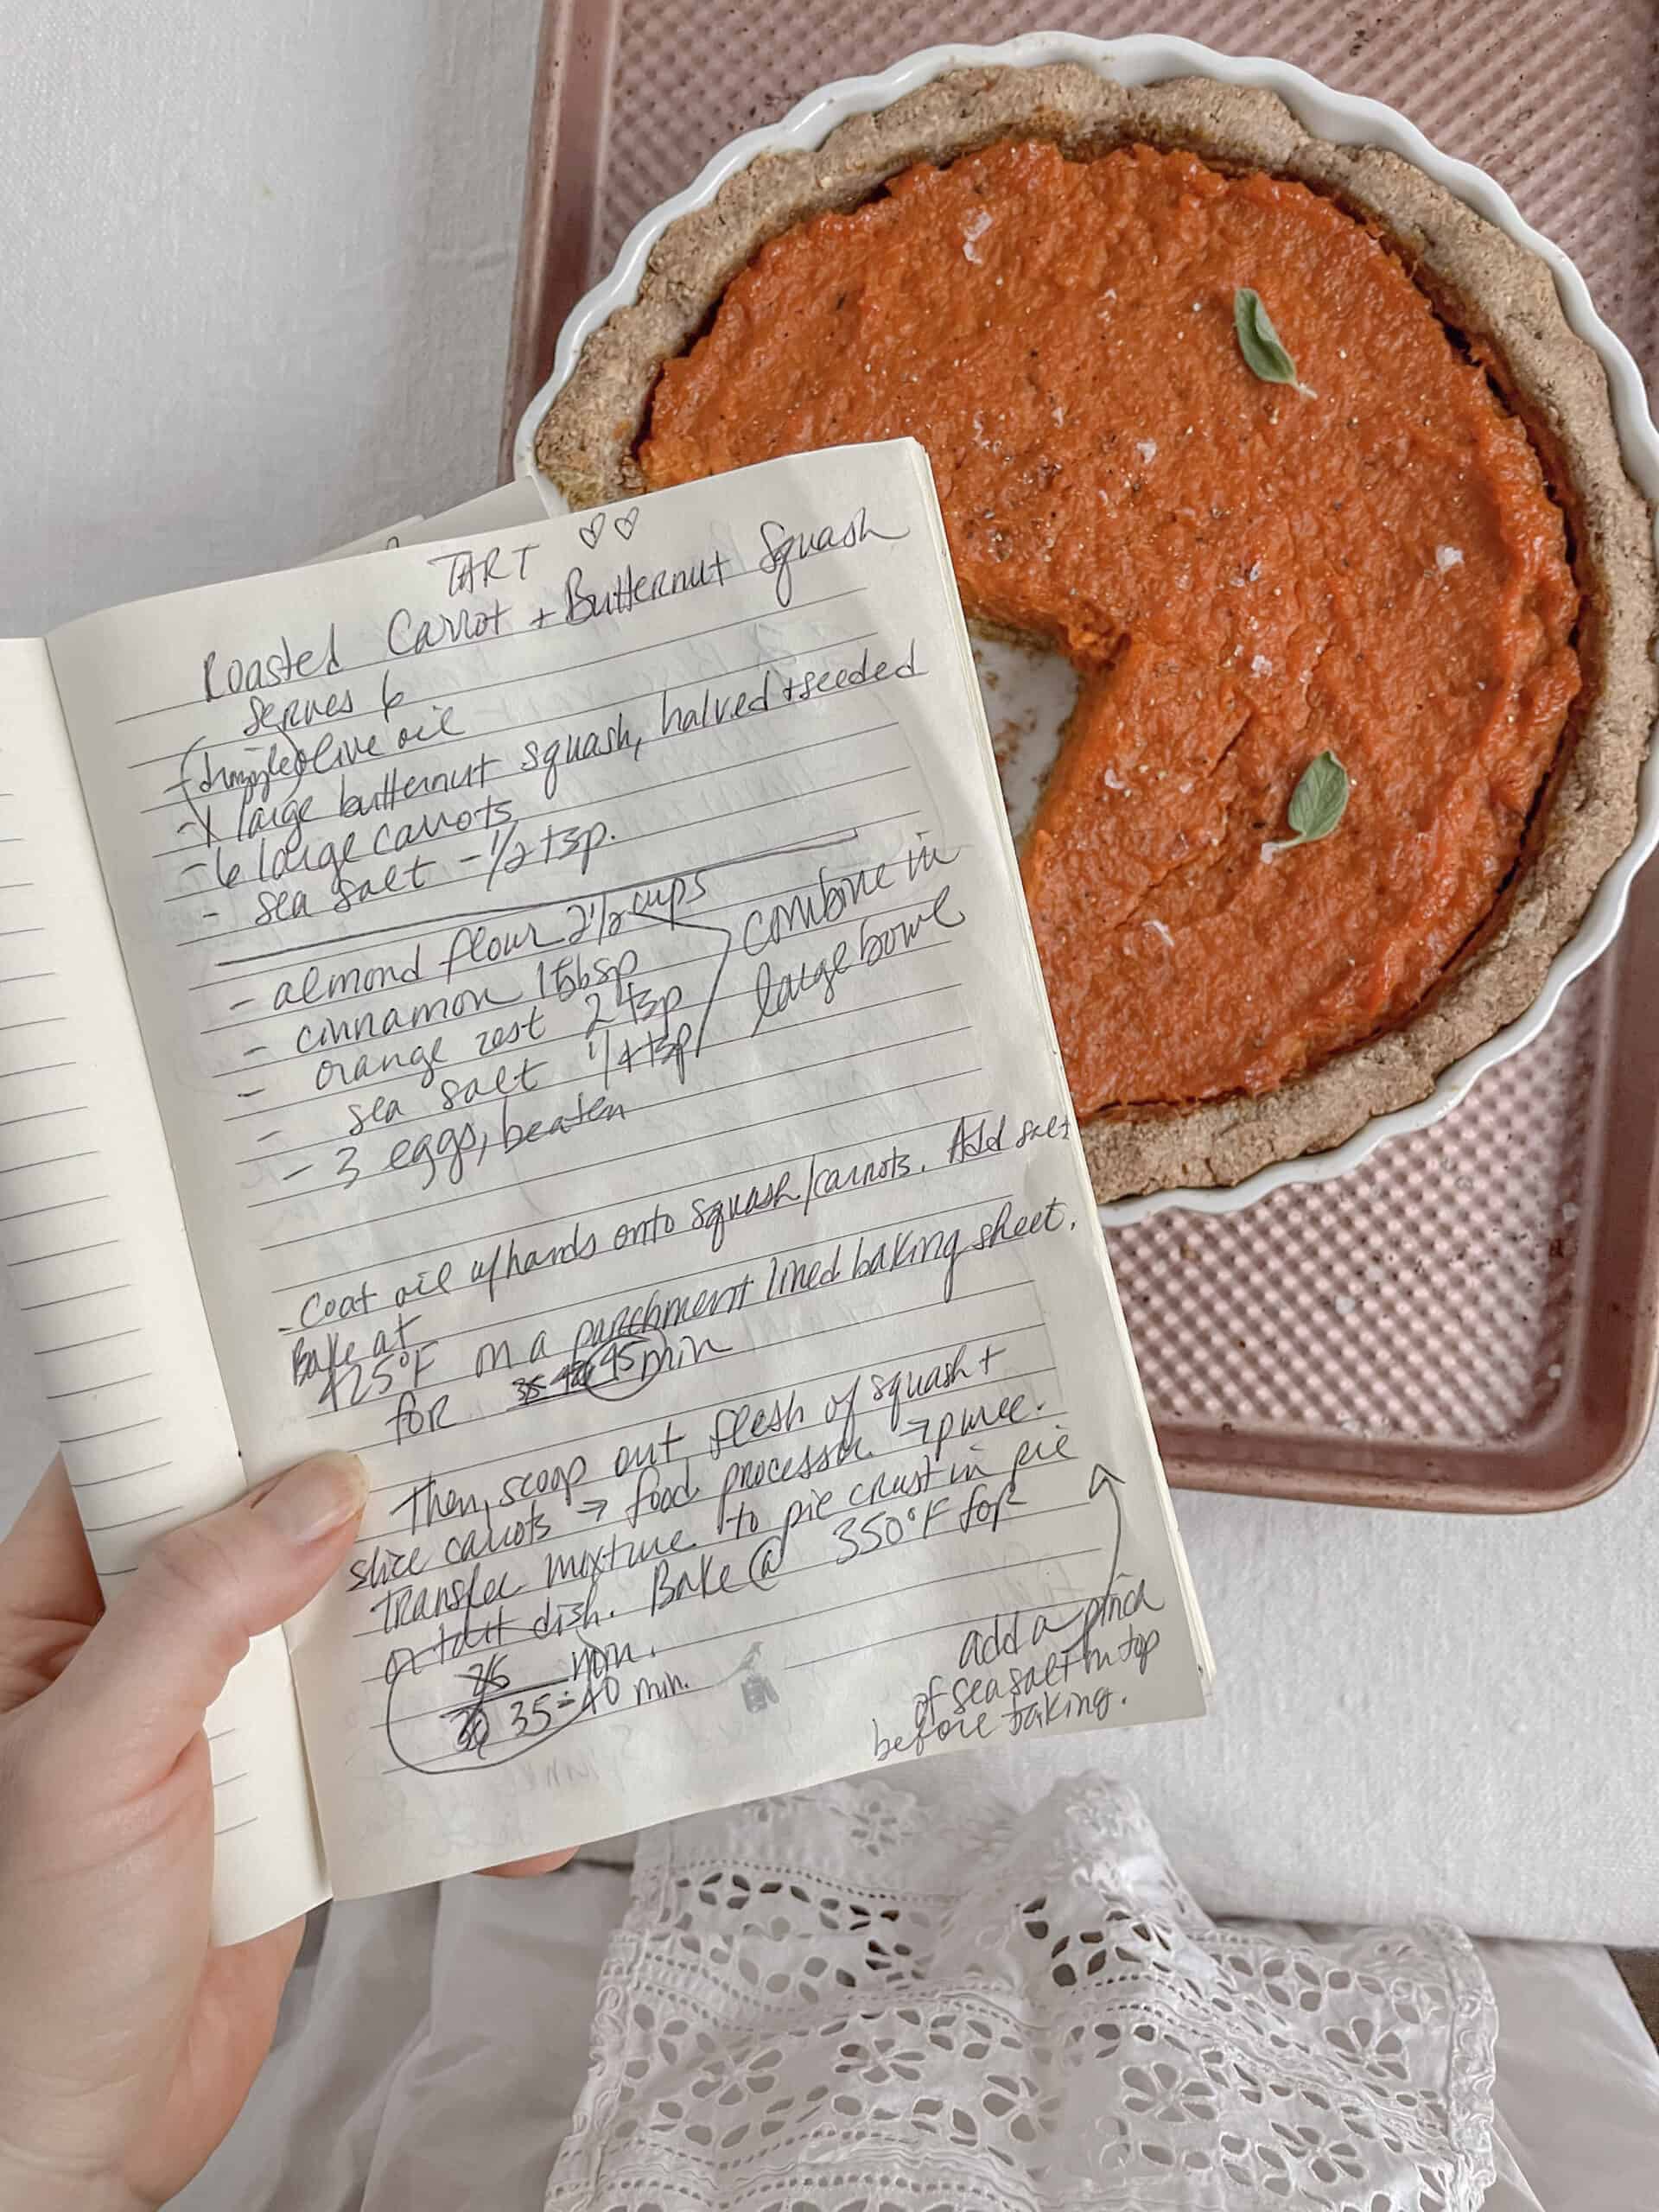 TART ♡♡
Roasted Carrot + Butternut Squash
serves 6
- (drizzle) olive oil
- 1 large butternut squash, halved + seeded
- 6 large carrots
- sea salt - 1/2 tsp.
- almond flour 2 1/2 cups
- cinnamon 1 tbsp
- orange zest 2 tsp
- sea salt 1/4 tsp
- 3 eggs, beaten
combine in
large bowl
- Coat oil w/ hands onto squash/carrots. Add salt
Bake at
425°F on a parchment lined baking sheet.
for 45 min
Then, scoop out flesh of squash +
slice carrots → food processor. → puree.
Transfer mixture to pie crust in pie
or tart dish. Bake @ 350°F for
min.
35-40 min.
add a pinch
of sea salt on top
before baking.